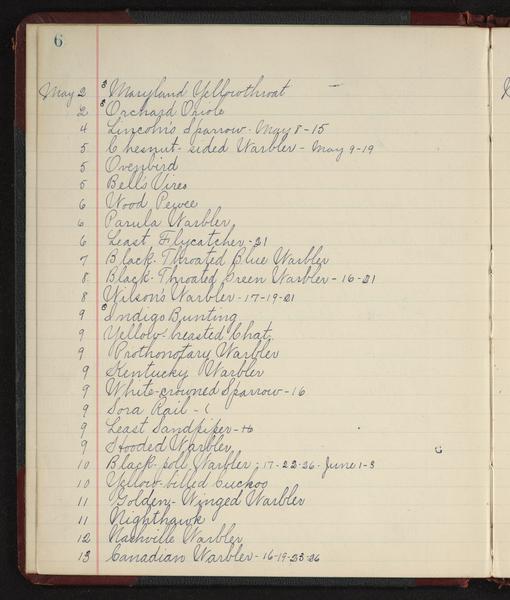 6
May 2 Maryland Yellowthroat –
2 Orchard Oriole
4 Lincoln's Sparrow - May 8-15
5 Chesnut-sided Warbler - May 9-19
5 Ovenbird
5 Bell's Vireo
6 Wood Pewee
6 Parula Warbler
6 Least Flycatcher - 21
7 Black-Throated Blue Warbler
8 Black-Throated Green Warbler - 16-21
8 Wilson's Warbler - 17-19-21
9 Indigo Bunting
9 Yellow-breasted Chat
9 Prothonotary Warbler
9 Kentucky Warbler
9 White-crowned Sparrow - 16
9 Sora Rail -
9 Least Sandpiper - 16
9 Hooded Warbler
10 Black-poll Warbler; 17-22-26- June 1-3
10 Yellow-billed Cuckoo
11 Golden-Winged Warbler
11 Nighthawk
12 Nashville Warbler
13 Canadian Warbler - 16-19-23-26